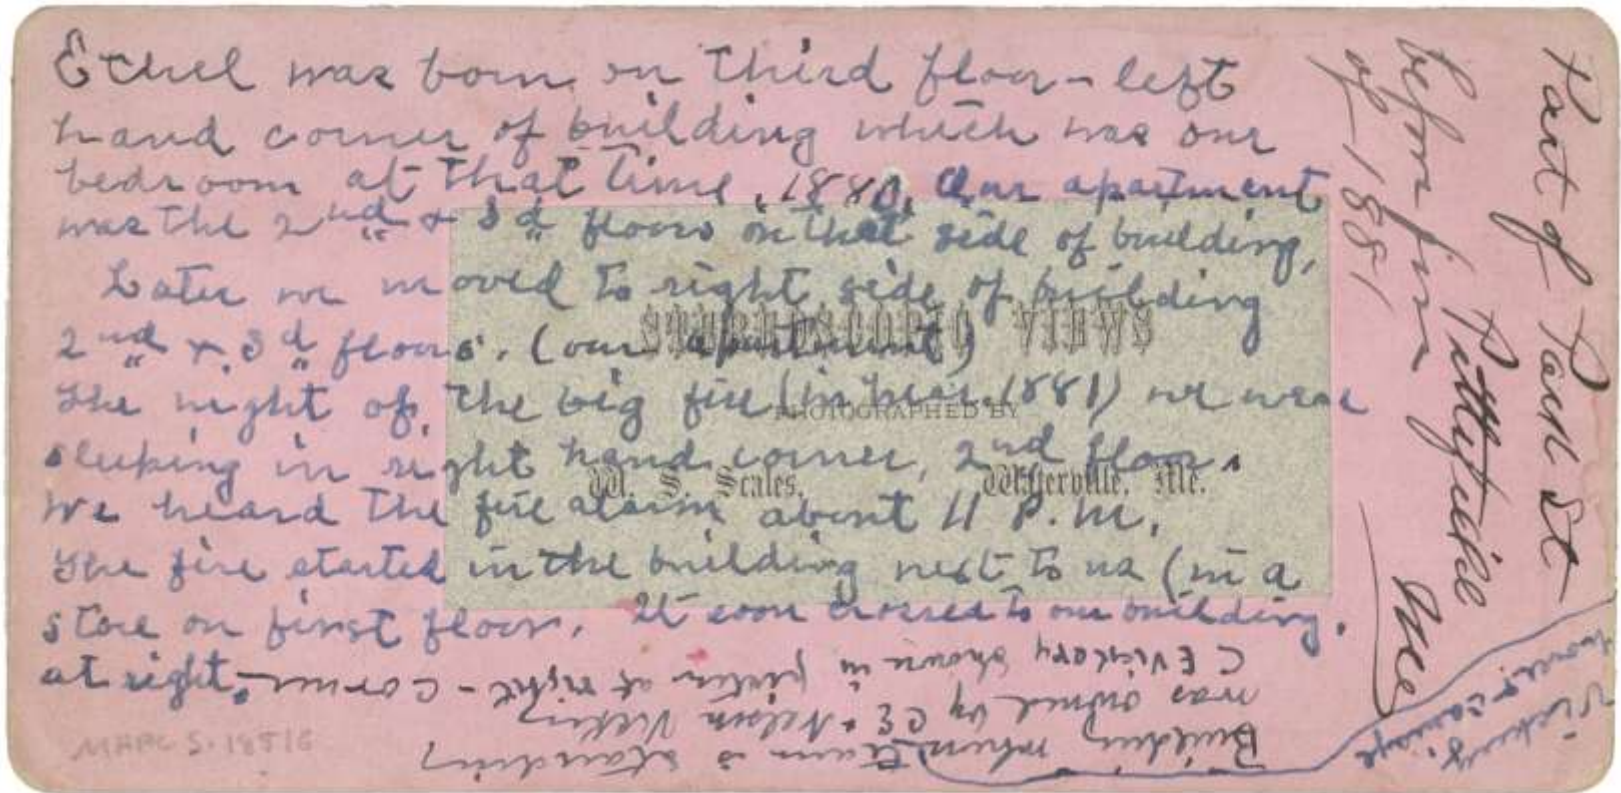 Ethel was born on third floor - left
hand corner of building which was our
bedroom at that time, 1880. Our apartment
was the 2nd & 3d floors on that side of building,
Later we moved to right side of building
2nd & 3d floors. (our apartment)
The night of the big fire (in Mar. 1881) we were
sleeping in right hand corner, 2nd floor.
We heard the fire alarm about 11 P.M.
The fire started in the building next to us (in a
store on first floor. It soon crossed to our building.
at right - corner -
STEREOSCOPIC VIEWS
PHOTOGRAPHED BY
W. S. Scales, Waterville, Me.
Part of Park St
Pittsfield Me
before fire
of 1881
Building where team is standing
was owned by C E & Nelson Vickery
C E Vickery shown in picture at right
Vickery's
horse & carriage
MHPC S.18516